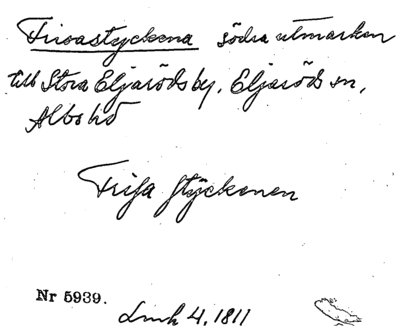 Frisastyckena södra utmarken
till Stora Eljaröds by, Eljaröds sn,
Albo hd
Frisa styckenen
Nr 5939.
Lmh 4, 1811